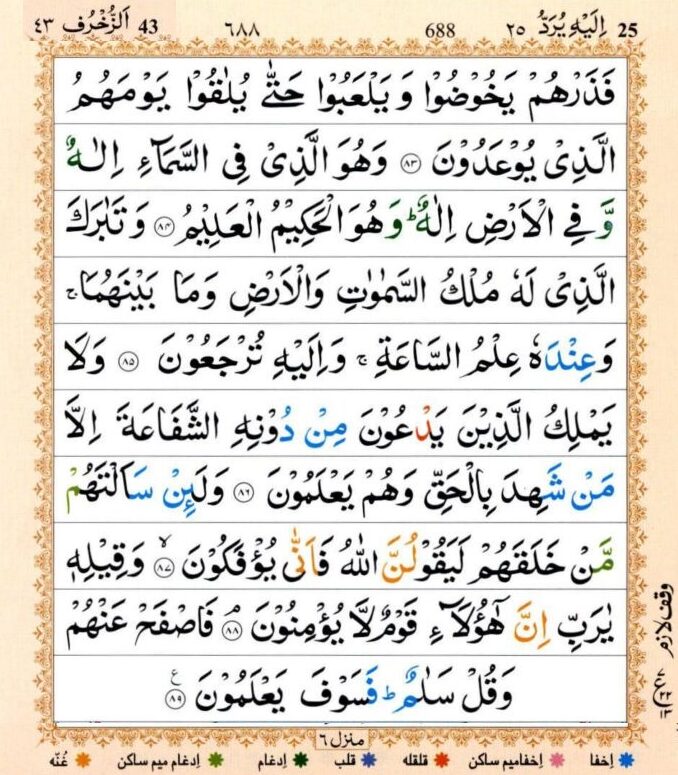 25 اِلَيۡهِ يُرَدُّ ٢٥ 688 ٦٨٨ 43 اَلزُّخۡرُف ٤٣
فَذَرۡهُمۡ يَخُوۡضُوۡا وَيَلۡعَبُوۡا حَتّٰى يُلٰقُوۡا يَوۡمَهُمُ
الَّذِىۡ يُوۡعَدُوۡنَ ۝٨٣ وَهُوَ الَّذِىۡ فِى السَّمَآءِ اِلٰهٌ
وَّفِى الۡاَرۡضِ اِلٰهٌ‌ ؕ وَهُوَ الۡحَكِيۡمُ الۡعَلِيۡمُ ۝٨٤ وَتَبٰرَكَ
الَّذِىۡ لَهٗ مُلۡكُ السَّمٰوٰتِ وَالۡاَرۡضِ وَمَا بَيۡنَهُمَا‌ ۚ
وَعِنۡدَهٗ عِلۡمُ السَّاعَةِ‌ ۚ وَاِلَيۡهِ تُرۡجَعُوۡنَ ۝٨٥ وَلَا
يَمۡلِكُ الَّذِيۡنَ يَدۡعُوۡنَ مِنۡ دُوۡنِهِ الشَّفَاعَةَ اِلَّا
مَنۡ شَهِدَ بِالۡحَقِّ وَهُمۡ يَعۡلَمُوۡنَ ۝٨٦ وَلَٮِٕنۡ سَاَلۡتَهُمۡ
مَّنۡ خَلَقَهُمۡ لَيَقُوۡلُنَّ اللّٰهُ‌ فَاَنّٰى يُؤۡفَكُوۡنَ ۙ‏ ۝٨٧ وَقِيۡلِهٖ
يٰرَبِّ اِنَّ هٰٓؤُلَاۤءِ قَوۡمٌ لَّا يُؤۡمِنُوۡنَ‌ۘ ۝٨٨ فَاصۡفَحۡ عَنۡهُمۡ
وَقُلۡ سَلٰمٌ‌ؕ فَسَوۡفَ يَعۡلَمُوۡنَ ۝٨٩ ع
وقف لازم
منزل ٦
اِخفا اِخفامیم ساکن قلقله قلب اِدغام اِدغام میم ساکن غُنّه